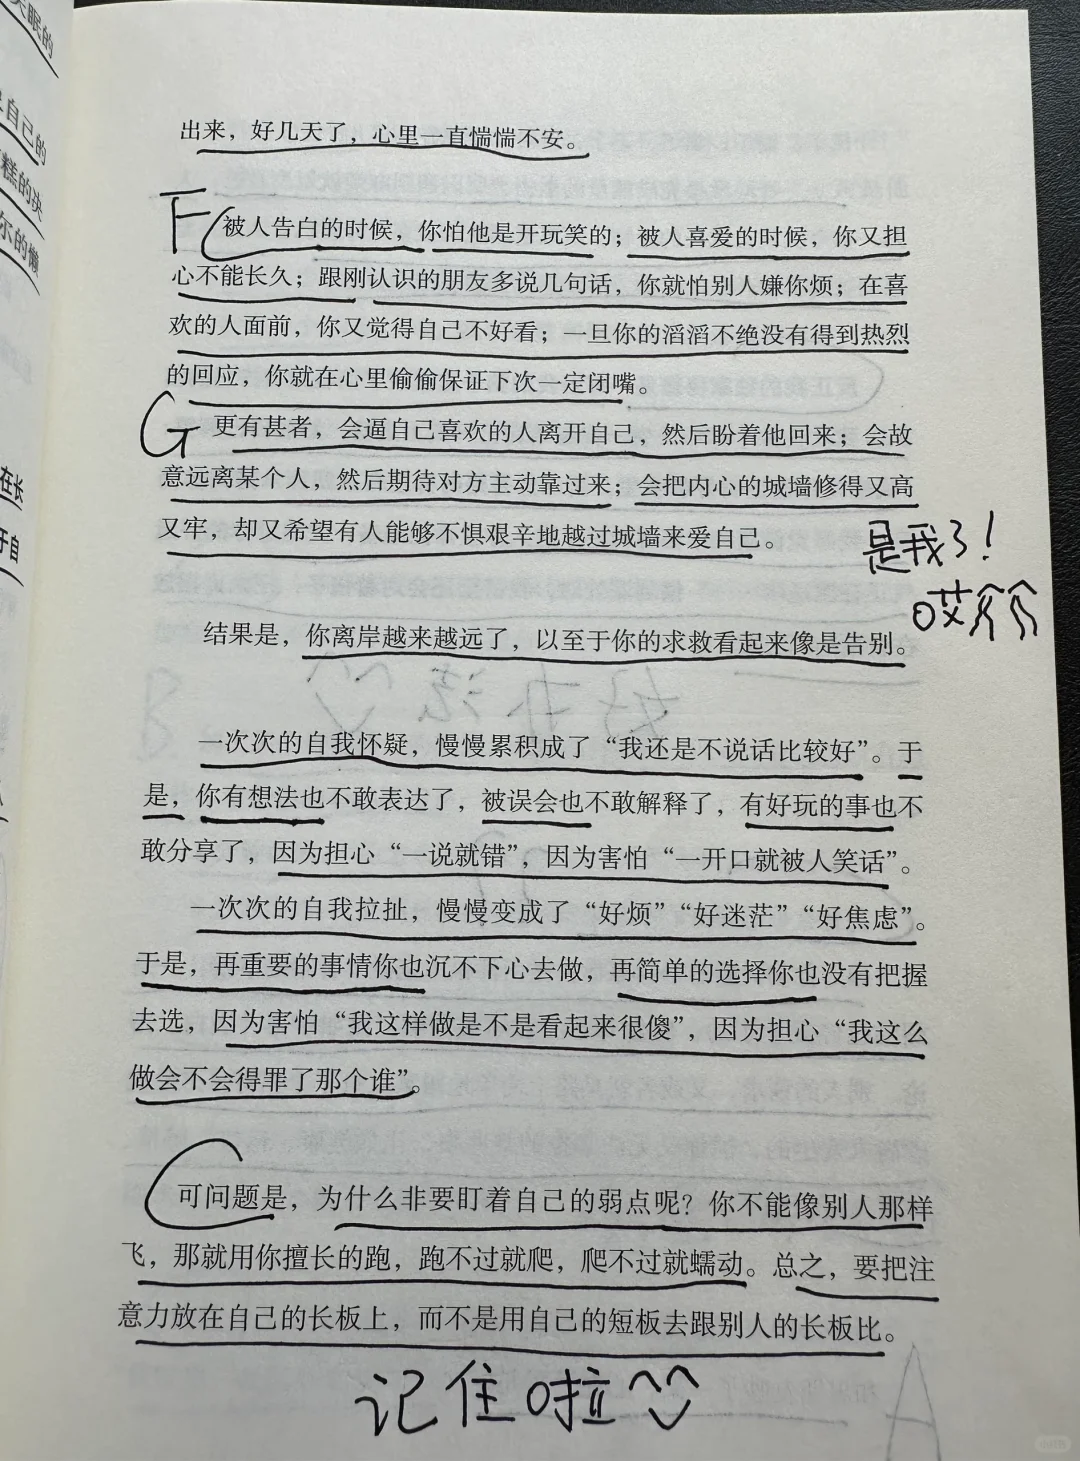 出来，好几天了，心里一直惴惴不安。
F
被人告白的时候，你怕他是开玩笑的；被人喜爱的时候，你又担
心不能长久；跟刚认识的朋友多说几句话，你就怕别人嫌你烦；在喜
欢的人面前，你又觉得自己不好看；一旦你的滔滔不绝没有得到热烈
的回应，你就在心里偷偷保证下次一定闭嘴。
G
更有甚者，会逼自己喜欢的人离开自己，然后盼着他回来；会故
意远离某个人，然后期待对方主动靠过来；会把内心的城墙修得又高
又牢，却又希望有人能够不惧艰辛地越过城墙来爱自己。
是我了！
哎
结果是，你离岸越来越远了，以至于你的求救看起来像是告别。
一次次的自我怀疑，慢慢累积成了“我还是不说话比较好”。于
是，你有想法也不敢表达了，被误会也不敢解释了，有好玩的事也不
敢分享了，因为担心“一说就错”，因为害怕“一开口就被人笑话”。
一次次的自我拉扯，慢慢变成了“好烦”“好迷茫”“好焦虑”。
于是，再重要的事情你也沉不下心去做，再简单的选择你也没有把握
去选，因为害怕“我这样做是不是看起来很傻”，因为担心“我这么
做会不会得罪了那个谁”。
可问题是，为什么非要盯着自己的弱点呢？你不能像别人那样
飞，那就用你擅长的跑，跑不过就爬，爬不过就蠕动。总之，要把注
意力放在自己的长板上，而不是用自己的短板去跟别人的长板比。
记住啦